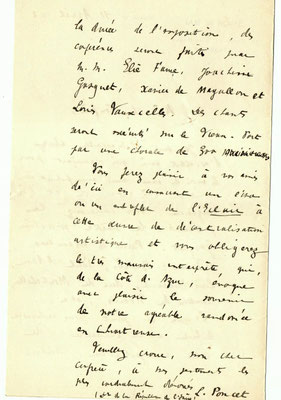 la durée de l'exposition, des
conférences seront faites par
M. M. Elie Faure, Joachim
Gasquet, Xavier de Magallon et
Louis Vauxcelles. Des chants
seront exécutés sur le Vieux-Port
par une chorale de 300 musiciens
Vous ferez plaisir à nos amis
d'ici en consacrant un
ou un entrefilet de l'Eclair à
cette œuvre de décentralisation
artistique et vous obligerez
le très mauvais interprète, qui,
de la Côte d'Azur, évoque
avec plaisir le souvenir
de notre agréable randonnée
en Chartreuse.
Veuillez croire, mon cher
confrère, à mes sentiments les
plus cordialement dévoués
L. Poncet